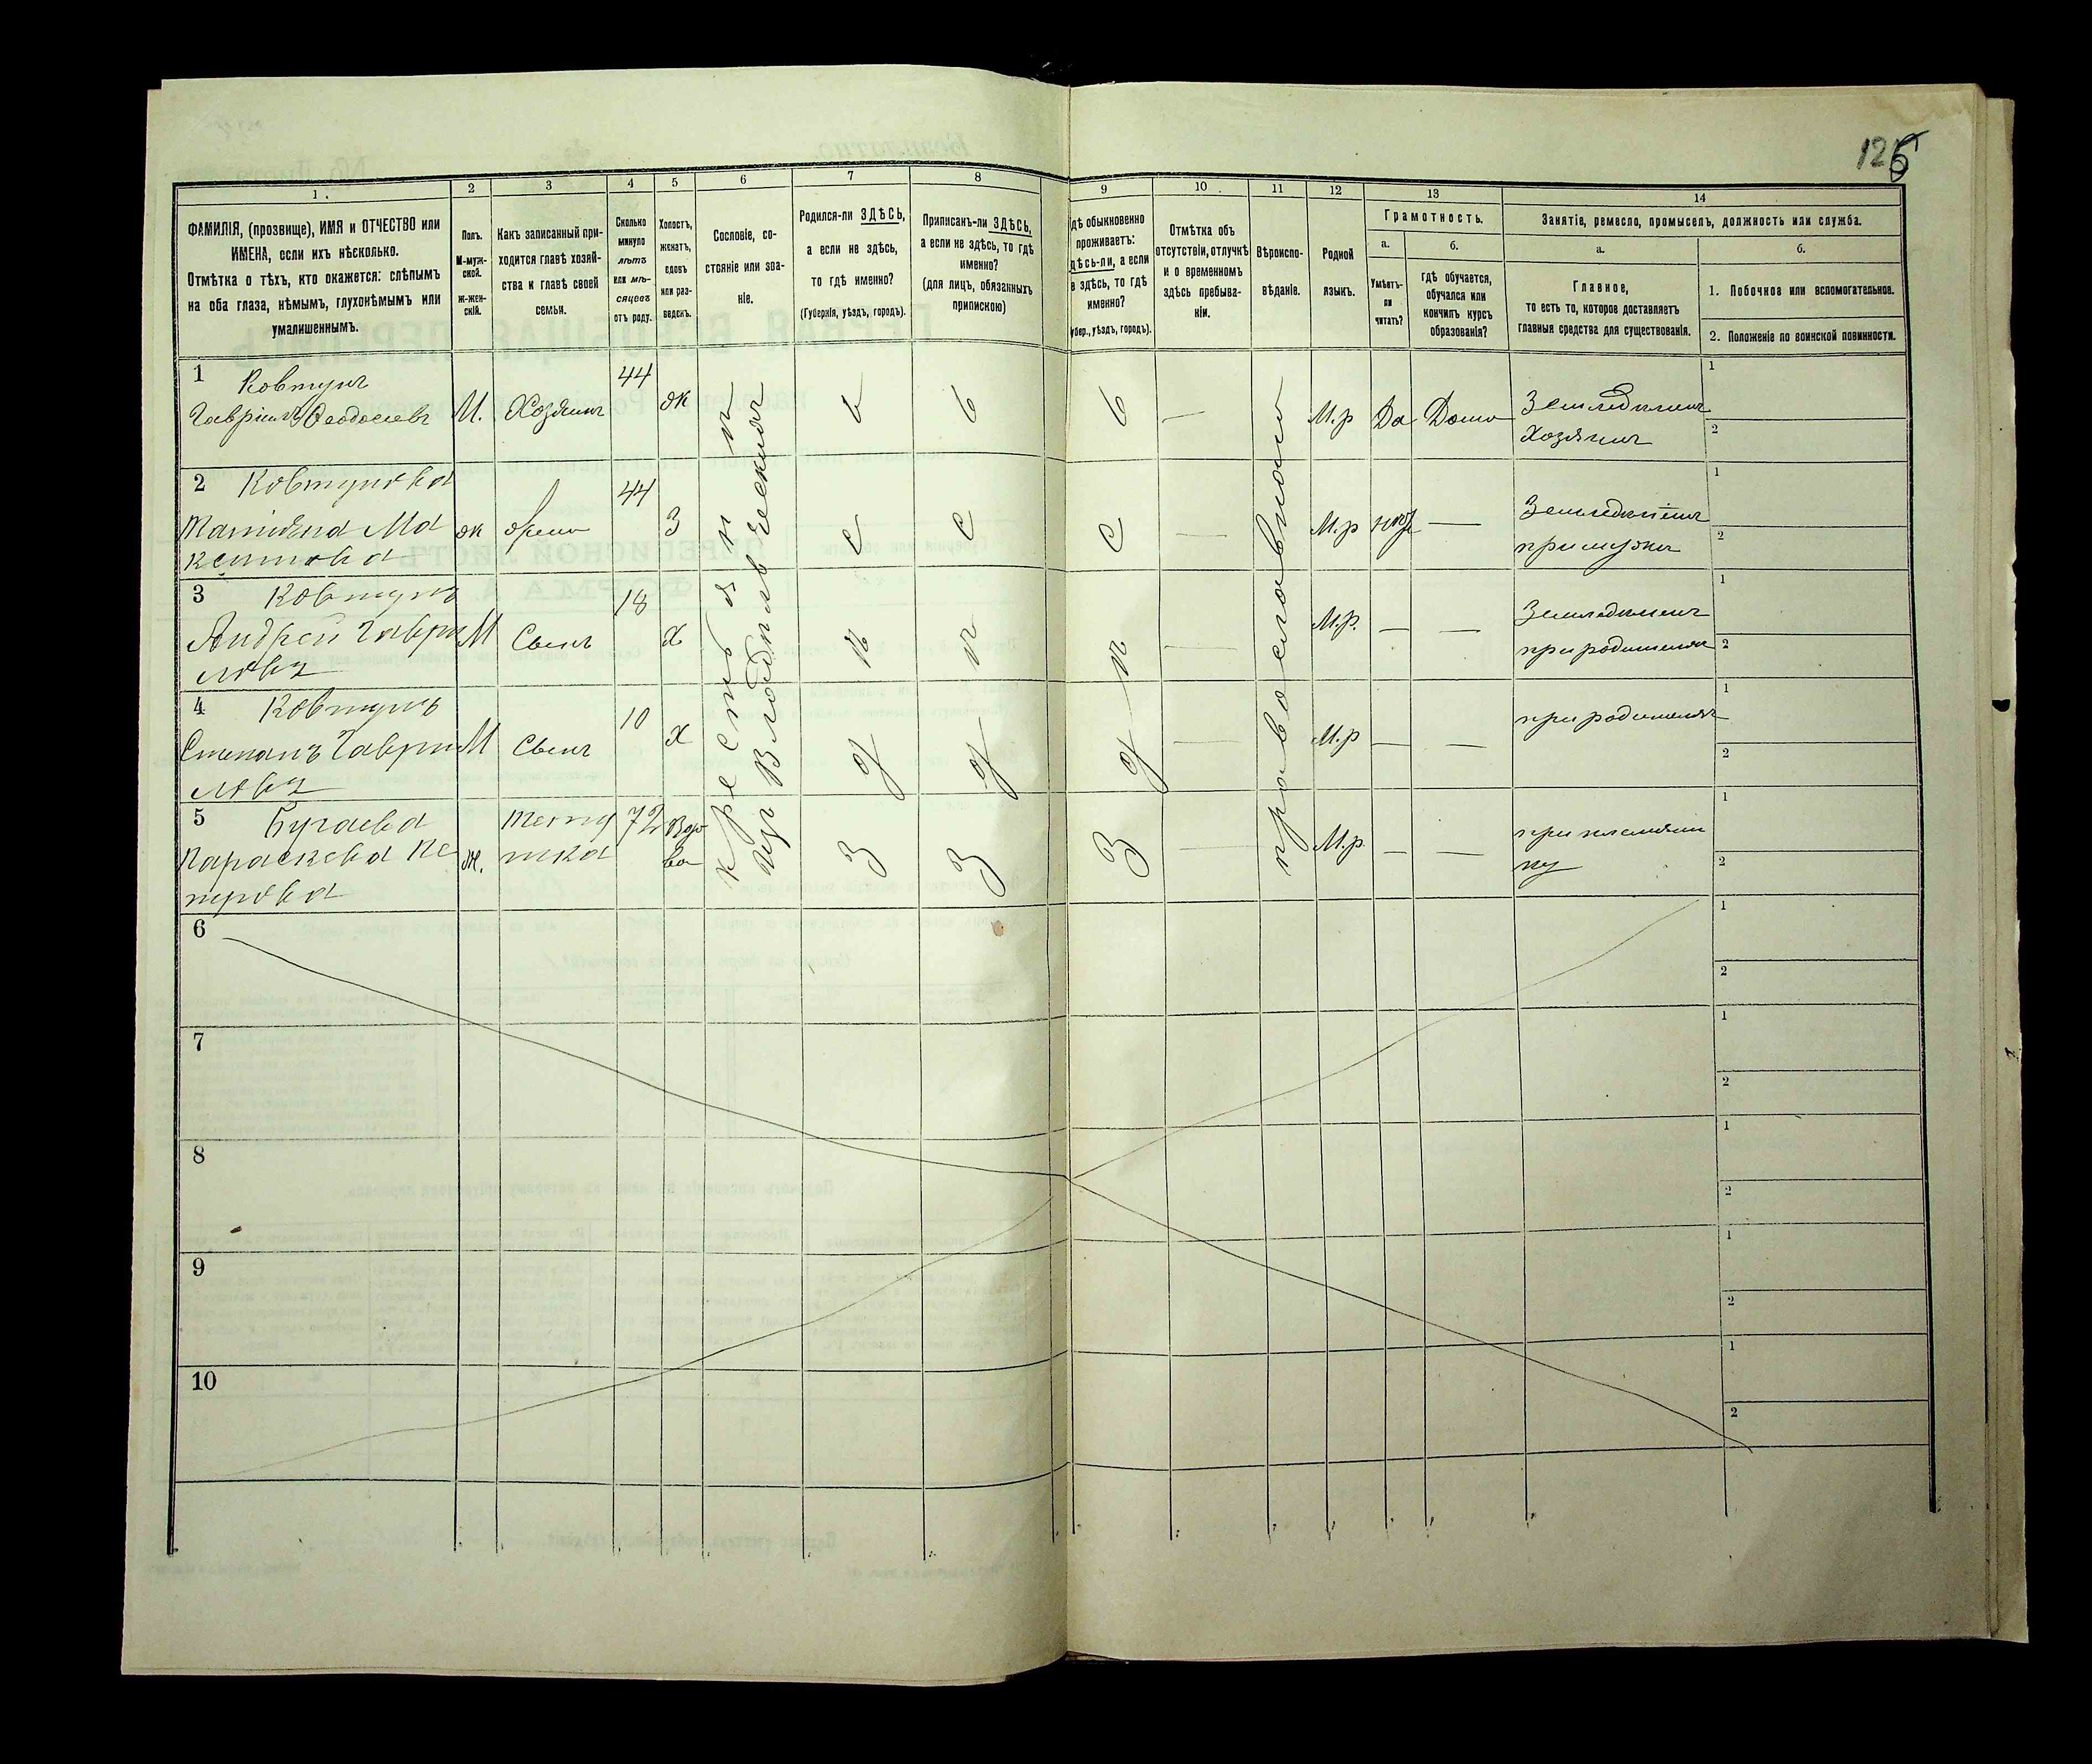 125
1.
2
3
4
5
6
7
8
9
10
11
12
13
14
ФАМИЛІЯ, (прозвище), ИМЯ и ОТЧЕСТВО или
ИМЕНА, если ихъ нѣсколько.
Отмѣтка о тѣхъ, кто окажется: слѣпымъ
на оба глаза, нѣмымъ, глухонѣмымъ или
умалишеннымъ.
Полъ.
М-муж-
ской.
ж-жен-
скій.
Какъ записанный при-
ходится главѣ хозяй-
ства и главѣ своей
семьи.
Сколько
минуло
лѣтъ
или мѣ-
сяцевъ
отъ роду.
Холостъ,
женатъ,
вдовъ
или раз-
веденъ.
Сословіе, со-
стояніе или зва-
ніе.
Родился-ли ЗДѢСЬ,
а если не здѣсь,
то гдѣ именно?
(Губернія, уѣздъ, городъ).
Приписанъ-ли ЗДѢСЬ,
а если не здѣсь, то гдѣ
именно?
(для лицъ, обязанныхъ
припискою)
дѣ обыкновенно
проживаетъ:
дѣсь-ли, а если
в здѣсь, то гдѣ
именно?
убер., уѣздъ, городъ).
Отмѣтка объ
отсутствіи, отлучкѣ
и о временномъ
здѣсь пребыва-
ніи.
Вѣроиспо-
вѣданіе.
Родной
языкъ.
Грамотность.
а.
б.
Умѣетъ-
ли
читать?
гдѣ обучается,
обучался или
кончилъ курсъ
образованія?
Занятіе, ремесло, промыселъ, должность или служба.
а.
б.
Главное,
то есть то, которое доставляетъ
главныя средства для существованія.
1. Побочное или вспомогательное.
2. Положеніе по воинской повинности.
1 Ковтунъ
Гавріилъ Ѳеодосіевъ М. Хозяинъ 44 ж М.р Да Дома Земледѣлецъ
Хозяинъ
1
2
2 Ковтунова
Татіяна Ма
ксимова ж жена 44 З М.р Земледѣліемъ
при мужѣ
1
2
3 Ковтунъ
Андрей Гаври
ловъ М Сынъ 18 Х М.р. Земледѣлецъ
при родителяхъ
1
2
4 Ковтунъ
Степанъ Гаври
ловъ М Сынъ 10 Х М.р при родителяхъ
1
2
5 Бугаева
Параскева Пе
трова ж. тету
шка 72 Вдо
ва М.р при племянни
ку
1
2
крестьянинъ
изъ Владѣльческихъ
з д п с ь
з д п с ь
з д п с ь
православного
6
1
2
7
1
2
8
1
2
9
1
2
10
1
2